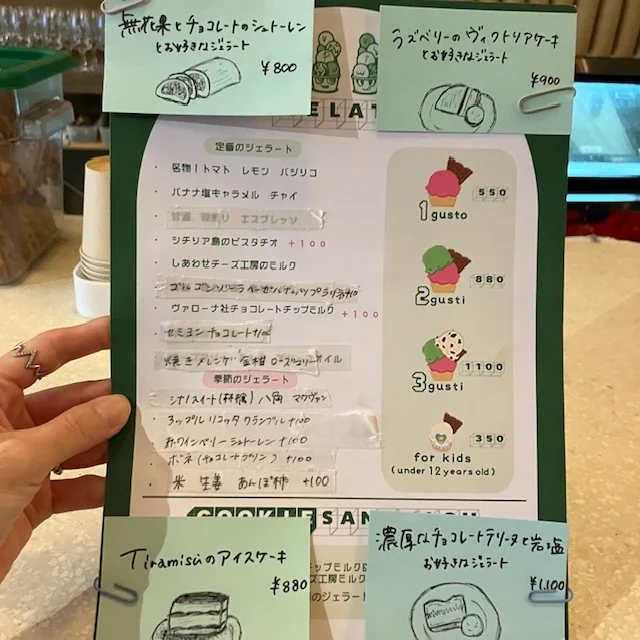 無花果とチョコレートのシュトーレン
とお好きなジェラート
¥800
ラズベリーのヴィクトリアケーキ
とお好きなジェラート
¥900
ELAT
定番のジェラート
・ 名物！トマト レモン バジリコ
・ バナナ塩キャラメル チャイ
エスプレッソ
・ シチリア島のピスタチオ +100
・ しあわせチーズ工房のミルク
・ ヴァローナ社チョコレートチップミルク +100
・ セミヨンチョコレート+100
焼きメレンゲ 金柑 ローズマリーオイル
季節のジェラート
・ シナノスイート(林檎) 八角 マクヴァン
アップル リコッタ クランブル +100
・ 赤ワインベリーシュトーレン +100
・ ボネ(チョコレートプリン) +100
・ 米 生姜 あんぽ柿 +100
1 gusto 550
2 gusti 880
3 gusti 1100
for kids 350
(under 12 years old)
COOKIE SAN
Tiramisùのアイスケーキ
¥880
濃厚なチョコレートテリーヌと岩塩
お好きなジェラート
¥1,100
チップミルク
ズ工房ミルク
のジェラート